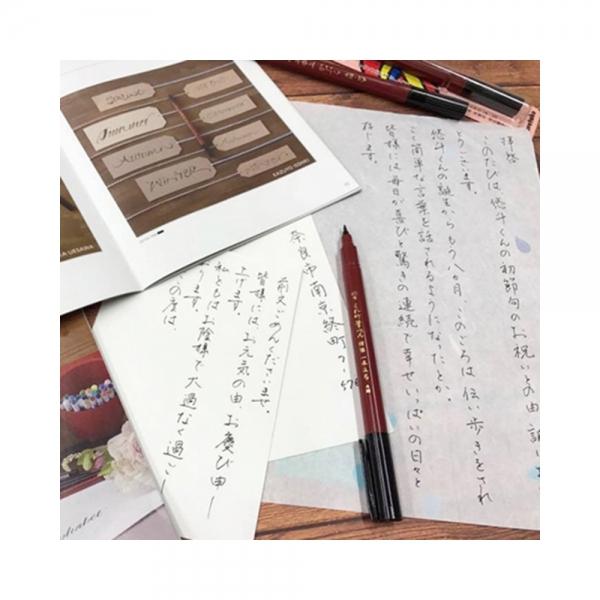 Summer
Autumn
WINTER
A UESAWA
拝啓
このたびは悠斗くんの初節句のお祝いとの由 誠に
とうございます。
悠斗くんの誕生からもう八か月、このごろは伝い歩きをされ
ごく簡単な言葉を話されるようになったとか。
皆様には毎日が喜びと驚きの連続で幸せいっぱいの日々と
存じます。
奈良市南京終町7-576
前文ごめんくださいませ。
皆様には、お元気の由、お慶び申し
上げます。
私どもはお陰様で大過なく過ごし
ります。
の度は、
くれ竹筆ぺん